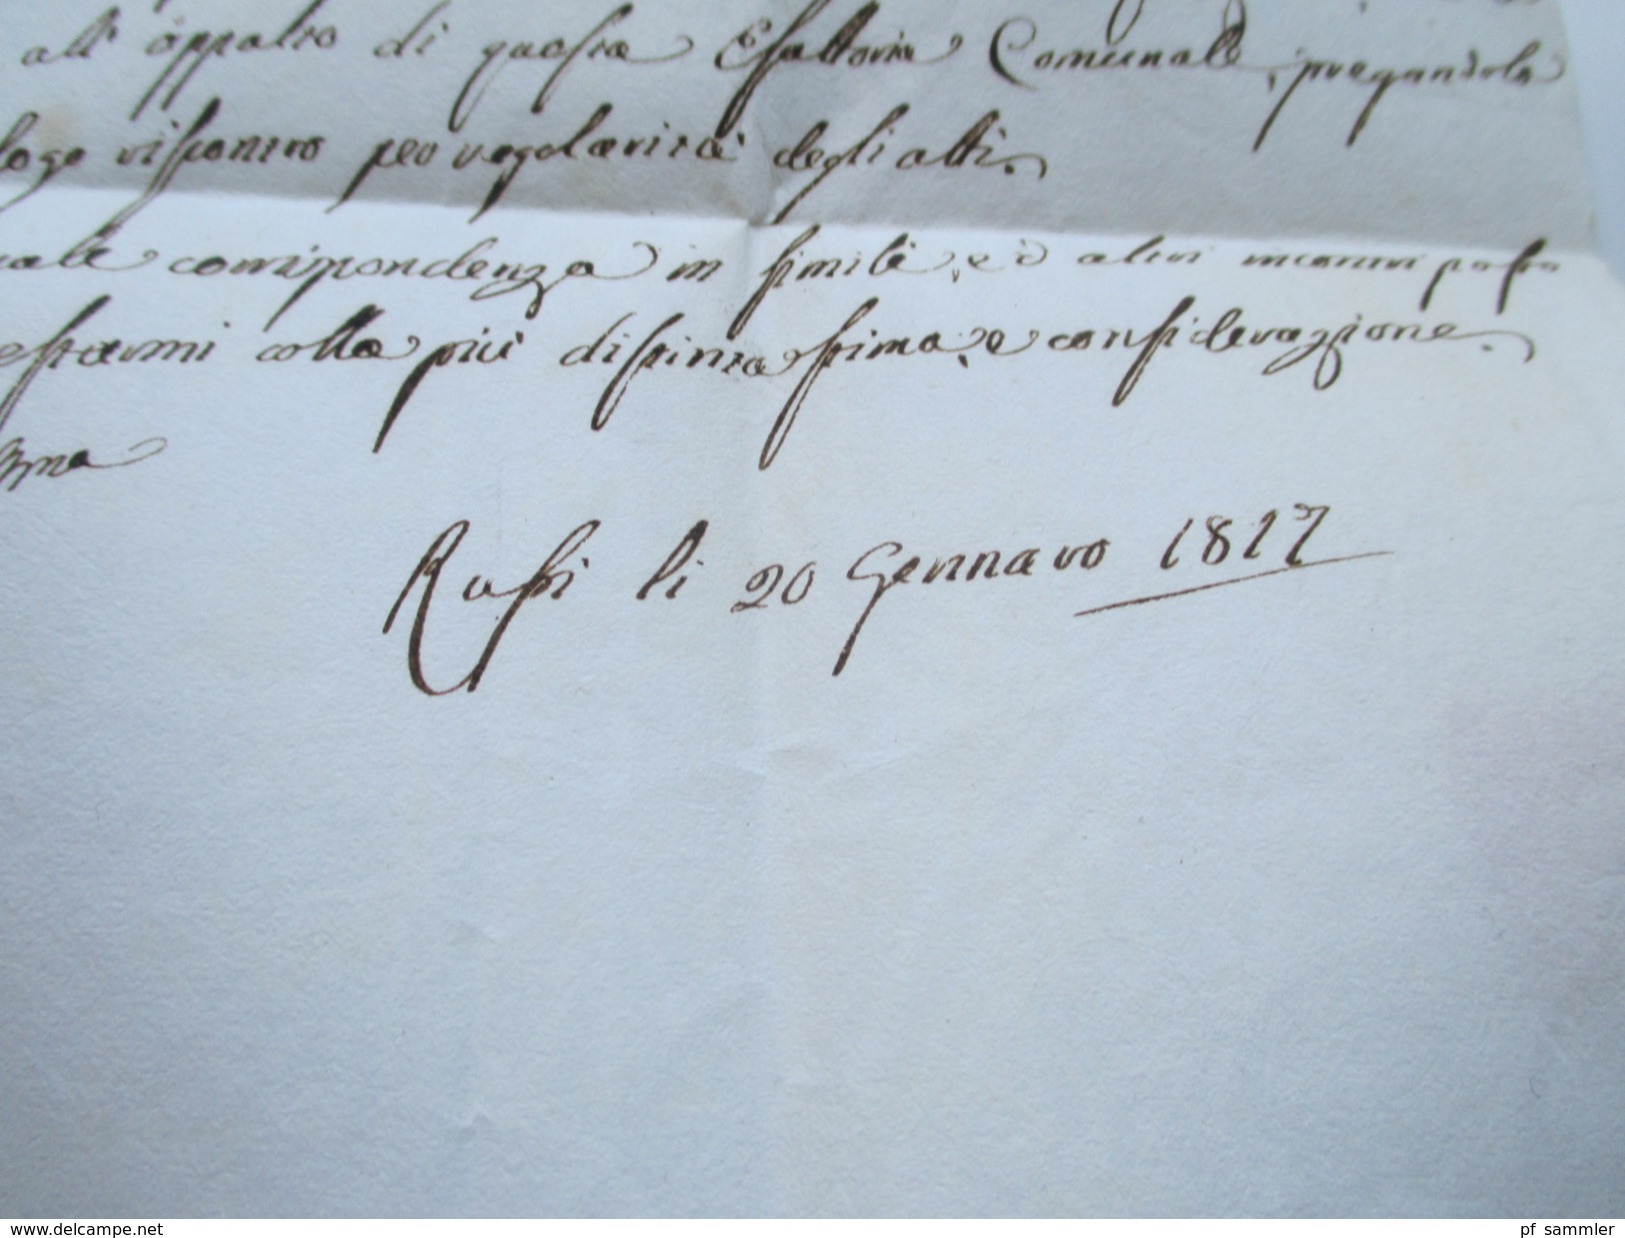 all' appalto di questa Esattoria Comunale, pregandola
riscontro per regolarità degli atti.
corrispondenza in simili, ed altri incontri posso
colla più distintissima, e considerazione.
Russi li 20 Gennaro 1817
www.delcampe.net
pf_sammler